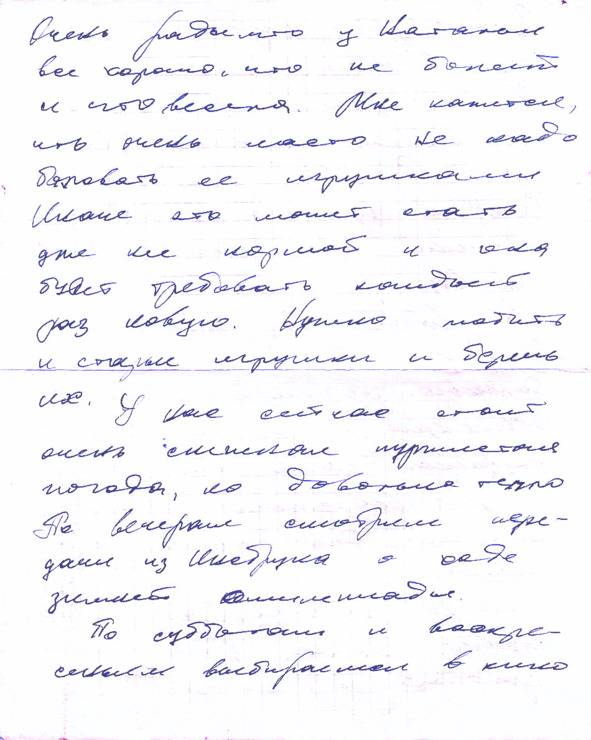 Очень рады, что у Наташи
все хорошо, что не болеет
и что весела. Мне кажется,
что очень часто не надо
баловать ее игрушками
Иначе это может стать
для нее нормой и она
будет требовать каждый
раз новую. Нужно любить
и старые игрушки и беречь
их. У нас сейчас стоит
очень снежная пуржистая
погода, но довольно тепло
По вечерам смотрим пере-
дачи из Инсбрука о ходе
зимней олимпиады.
По субботам и воскре-
сеньям выбираемся в кино